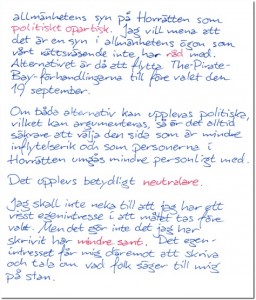 allmänhetens syn på Hovrätten som
politiskt opartisk. Jag vill mena att
det är en syn i allmänhetens ögon som
vårt rättsväsende inte har råd med.
Alternativet är då att flytta The-Pirate-
Bay-förhandlingarna till före valet den
19 september.
Om båda alternativ kan upplevas politiska,
vilket kan argumenteras, så är det alltid
säkrare att välja den sida som är mindre
inflytelserik och som personerna i
Hovrätten umgås mindre personligt med.
Det upplevs betydligt neutralare.
Jag skall inte neka till att jag har ett
visst egenintresse i att målet tas före
valet. Men det gör inte det jag har
skrivit här mindre sant. Det egen-
intresset får mig däremot att skriva
och tala om vad folk säger till mig
på stan.